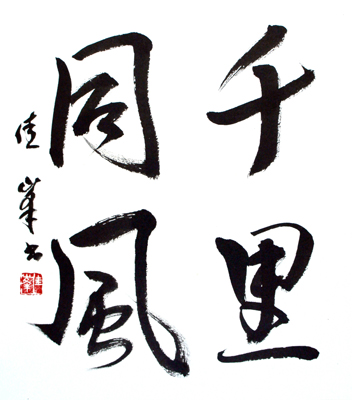 千里
同風
佳峯書